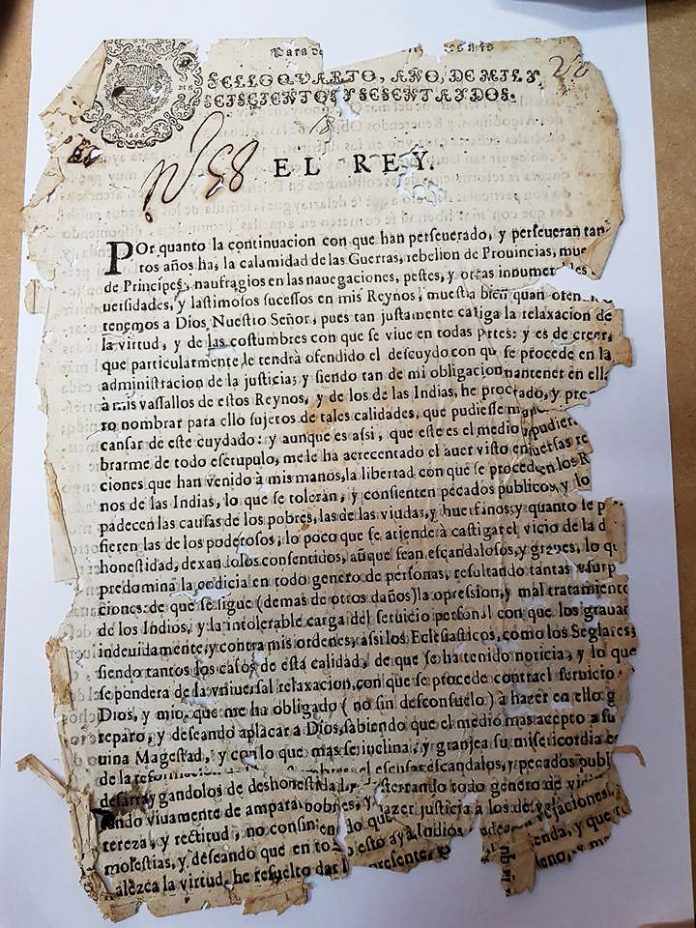 SELLO QVARTO, AÑO, DE MIL Y
SEISCIENTOS Y SESENTA Y DOS.
EL REY.
POr quanto la continuacion con que han perseuerado, y perseueran tan
tos años ha, la calamidad de las Guerras, rebelion de Prouincias, mue
de Principes, naufragios en las nauegaciones, pestes, y otras innumer les
uersidades, y lastimosos sucessos en mis Reynos, muestra bien quan ofen
tenemos a Dios Nuestro Señor, pues tan justamente castiga la relaxacion de
la virtud, y de las costumbres con que se viue en todas partes: y es de creer,
que particularmente le tendrà ofendido el descuydo con qu se procede en la
administracion de la justicia; y siendo tan de mi obligacion mantener en ella
à mis vassallos de estos Reynos, y de los de las Indias, he procrado, y pro
ro nombrar para ello sujetos de tales calidades, que pudiesse
cansar de este cuydado: y aunque es assi, que este es el medio pudier
brarme de todo escrupulo, me le ha acrecentado el auer visto en uersas re
ciones que han venido à mis manos, la libertad con que se proced en los R
nos de las Indias, lo que se toleran, y consienten pecados publicos, y lo
padecen las causas de los pobres, las de las viudas, y huerfanos: y quanto le p
fieren las de los poderosos, lo poco que se atiende à castigar el vicio de la d
honestidad, dexandolos consentidos, aũque sean escandalosos, y graves, lo qu
predomina la codicia en todo genero de personas, resultando tantas vsurp
ciones: de que se sigue (demas de otros daños) la opression, y mal tratamiento
de los Indios, y la intolerable carga del seruicio personal con que los grauan
indeuidamente, y contra mis ordenes, assi los Eclesiasticos, como los Seglares;
siendo tantos los casos de esta calidad, de que se ha tenido noticia, y lo que
se pondera de la vniuersal relaxacion, con que se procede contra el seruicio
Dios, y mio, que me ha obligado (no sin desconsuelo) à hazer en ello
reparo, y deseando aplacar à Dios, sabiendo que el medio mas acepto a su
uina Magestad, y con lo que mas se inclina, y granjea su misericordia es
de la reformacion escandalos, y pecados publ
desarraygandolos de deshonestidad, desterrando todo genero de
tando viuamente de amparar pobres, y hazer justicia à los
tereza, y rectitud, no consin en do que vejaciones,
molestias, y deseando que en to esto aya Indios
alezca la virtud, he resuelto dar la presente,